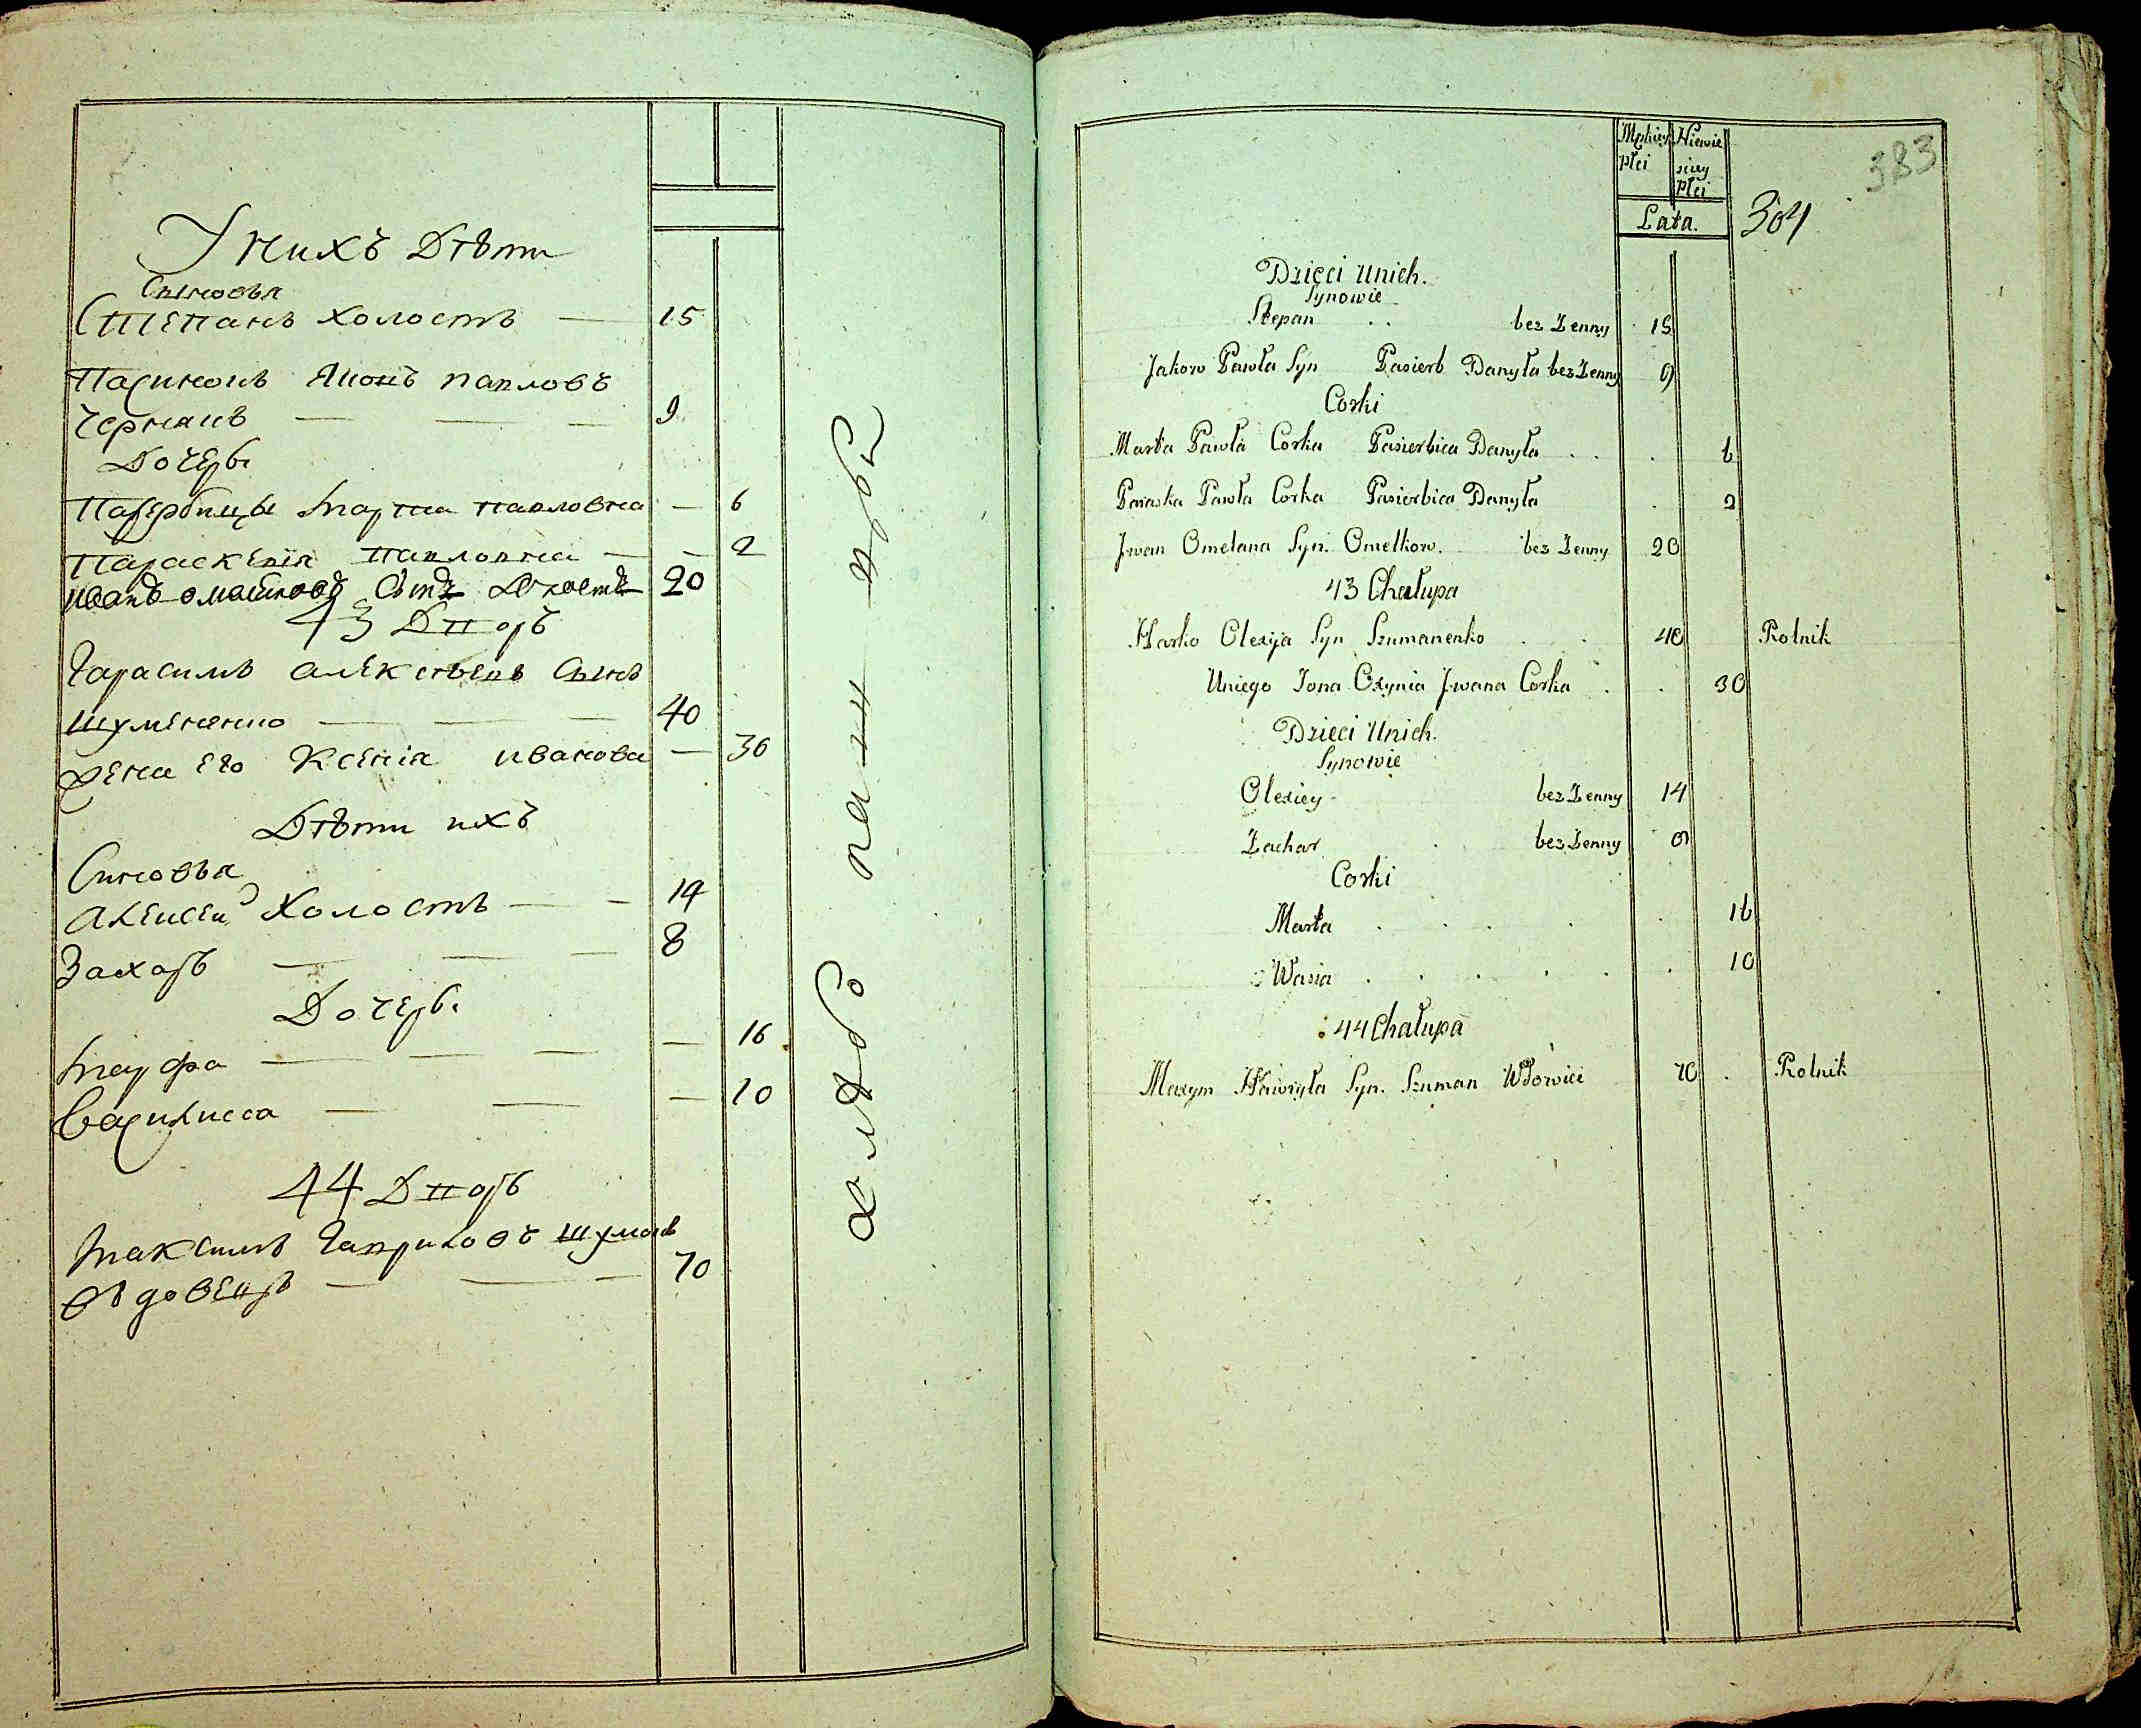 У нихъ Дѣти
Сыновья
Степанъ холостъ — 15
Пасинокъ Яковъ павловъ
Чернякъ — — — 9
Дочерѣ
Пасербицы Марта павловна — 6
Параскевія павловна — — 2
Иванъ омельковъ Сынъ холостъ 20
43 Дворъ
Гарасимъ алексѣевъ Сынъ
шуменкно — — — 40
жена его Ксенія иванова — 30
Дѣти ихъ
Синовья
Алексей Холостъ — — 14
Захаръ — — — 8
Дочерѣ
Марфа — — — — 16
Василисса — — — 10
44 Дворъ
Максимъ Гавриловъ шуманъ
въдовецъ — — — 70
хлѣбопашцы
Męzkiey Płci
Niewieściey Płci
Lata.
304
383
Dzięci Unich.
Synowie
Stepan . . bez Zenny 15
Jakow Pawła Syn Pasierb Danyła bez Zenny 9
Corki
Marta Pawła Corka Pasierbica Danyła . . . 6
Paraska Pawła Corka Pasierbica Danyła . 2
Jwan Omelana Syn. Omelkow. bez Zenny 20
43 Chałupa
Harko Olexija Syn Szumanenko . . 40 Rolnik
Uniego Zona Oxynia Jwana Corka . . 30
Dzieci Unich.
Synowie
Olexiey bez Zenny 14
Zachar bez Zenny 8
Corki
Marta . . . . . . 16
Wasia . . . . . . 10
44 Chałupa
Maxym Hawryła Syn. Szuman Wdowiec 70 . Rolnik